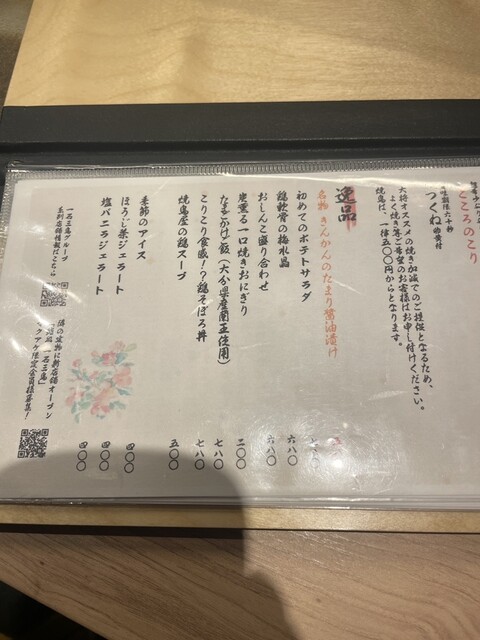 ところのこり
つくね 卵黄付
大将オススメの焼き加減でのご提供となるため、
よく焼き等ご希望のお客様はお申し付けください。
焼鳥は、一律五〇〇円からとなります。
逸品
名物 きんかんのたまり醤油漬け
初めてのポテトサラダ 六八〇
鶏軟骨の梅水晶 六八〇
おしんこ盛り合わせ
炭薫る一口焼きおにぎり 二〇〇
たまごかけご飯(大分県産蘭王使用) 七八〇
こりこり食感!?鶏そぼろ丼 七八〇
焼鳥屋の鶏スープ 五〇〇
季節のアイス 四〇〇
ほうじ茶ジェラート 四〇〇
塩バニラジェラート 四〇〇
一石三鳥グループ
系列店舗情報はこちら
隣の建物に新店舗オープン
「一石五鳥」
マクアケ限定会員様募集!